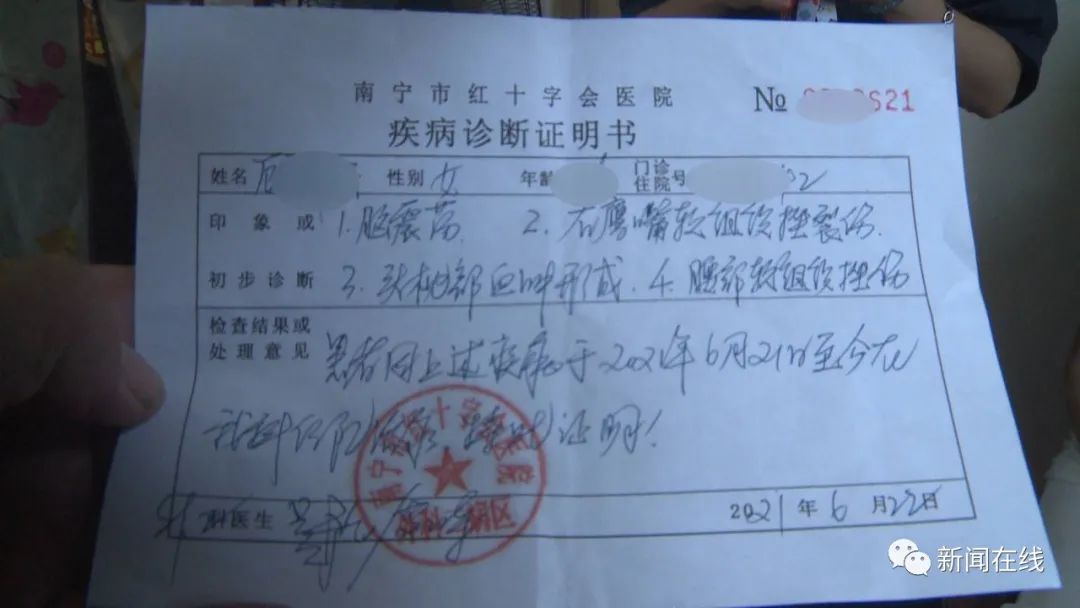 南宁市红十字会医院
№ 621
疾病诊断证明书
姓名 性别 女 年龄 门诊住院号 02
印象或初步诊断 1.脑震荡. 2.右鹰嘴软组织挫裂伤.
3.头枕部血肿形成. 4.腰部软组织挫伤
检查结果或处理意见 患者因上述疾病于2021年6月21日至今在
我科住院治疗 特此证明!
外科医生
南宁市红十字会医院
外科 病区
2021年6月22日
新闻在线